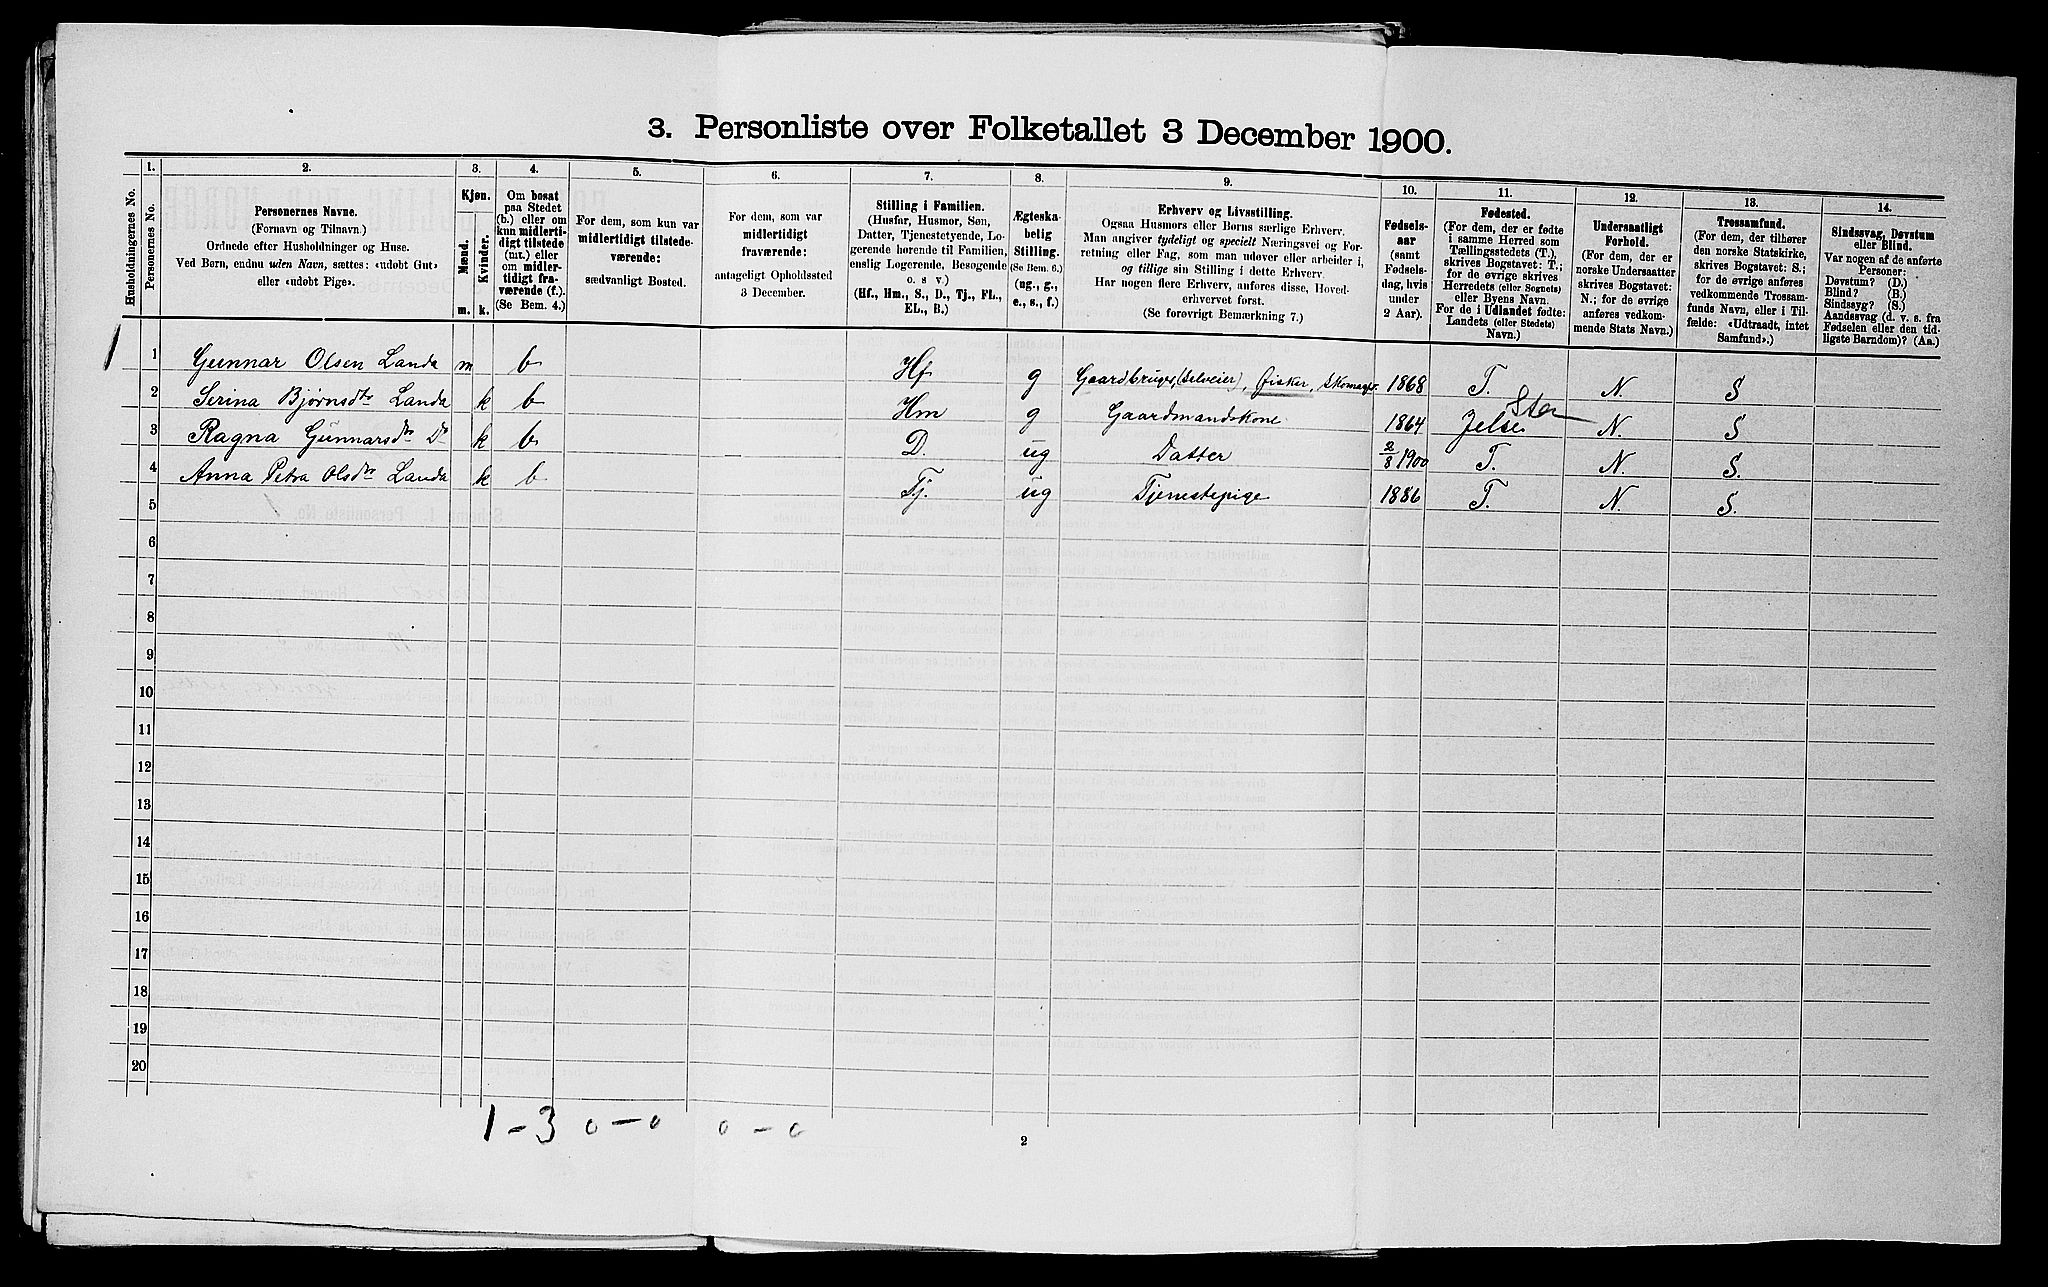 3. Personliste over Folketallet 3 December 1900.
Husholdningernes No.
1.
Personernes No.
2.
Personernes Navne.
(Fornavn og Tilnavn.)
Ordnede efter Husholdninger og Huse.
Ved Børn, endnu uden Navn, sættes: «udøbt Gut»
eller «udøbt Pige».
3.
Kjøn.
Mænd.
Kvinder.
m.
k.
4.
Om bosat
paa Stedet
(b.) eller om
kun midlerti-
digt tilstede
(mt.) eller
om midler-
tidigt fra-
værende (f.).
(Se Bem. 4.)
5.
For dem, som kun var
midlertidigt tilstede-
værende:
sædvanligt Bosted.
6.
For dem, som var
midlertidigt
fraværende:
antageligt Opholdssted
3 December.
7.
Stilling i Familien.
(Husfar, Husmor, Søn,
Datter, Tjenestetyende, Lo-
gerende hørende til Familien,
enslig Logerende, Besøgende
o. s v.)
(Hf., Hm., S., D., Tj., FL.,
EL., B.)
8.
Ægteska-
belig
Stilling.
(Se Bem. 6.)
(ug., g.,
e., s., f.)
9.
Erhverv og Livsstilling.
Ogsaa Husmors eller Børns særlige Erhverv.
Man angiver tydeligt og specielt Næringsvei og For-
retning eller Fag, som man udøver eller arbeider i,
og tillige sin Stilling i dette Erhverv.
Har nogen flere Erhverv, anføres disse, Hoved-
erhvervet først.
(Se forøvrigt Bemærkning 7.)
10.
Fødsels-
aar
(samt
Fødsels-
dag, hvis
under
2 Aar).
11.
Fødested.
(For dem, der er fødte
i samme Herred som
Tællingsstedets (T.),
skrives Bogstavet: T.;
for de øvrige skrives
Herredets (eller Sognets)
eller Byens Navn.
For de i Udlandet fødte:
Landets (eller Stedets)
Navn.)
12.
Undersaatligt
Forhold.
(For dem, der er
norske Undersaatter
skrives Bogstavet:
N.; for de øvrige
anføres vedkom-
mende Stats Navn.)
13.
Trossamfund.
(For dem, der tilhører
den norske Statskirke,
skrives Bogstavet: S.;
for de øvrige anføres
vedkommende Trossam-
funds Navn, eller i Til-
fælde: «Udtraadt, intet
Samfund».)
14.
Sindssvag, Døvstum
eller Blind.
Var nogen af de anførte
Personer:
Døvstum? (D.)
Blind? (B.)
Sindssyg? (S.)
Aandssvag (d. v. s. fra
Fødselen eller den tid-
ligste Barndom)? (Aa.)
1
1 Gunnar Olsen Landa m b Hf g Gaardbruger, (Selveier), Fisker, Skomager. 1868 T. N. S
2 Serina Bjørnsdtr Landa k b Hm g Gaardmandskone 1864 Jelse Sta N. S
3 Ragna Gunnarsdtr Do k b D. ug Datter 2/8 1900 T. N. S.
4 Anna Petra Olsdtr Landa k b Tj. ug Tjenestepige 1886 T. N. S.
5
6
7
8
9
10
11
12
13
14
15
16
17
18
19
20
1 - 3 0 - 0 0 - 0
2